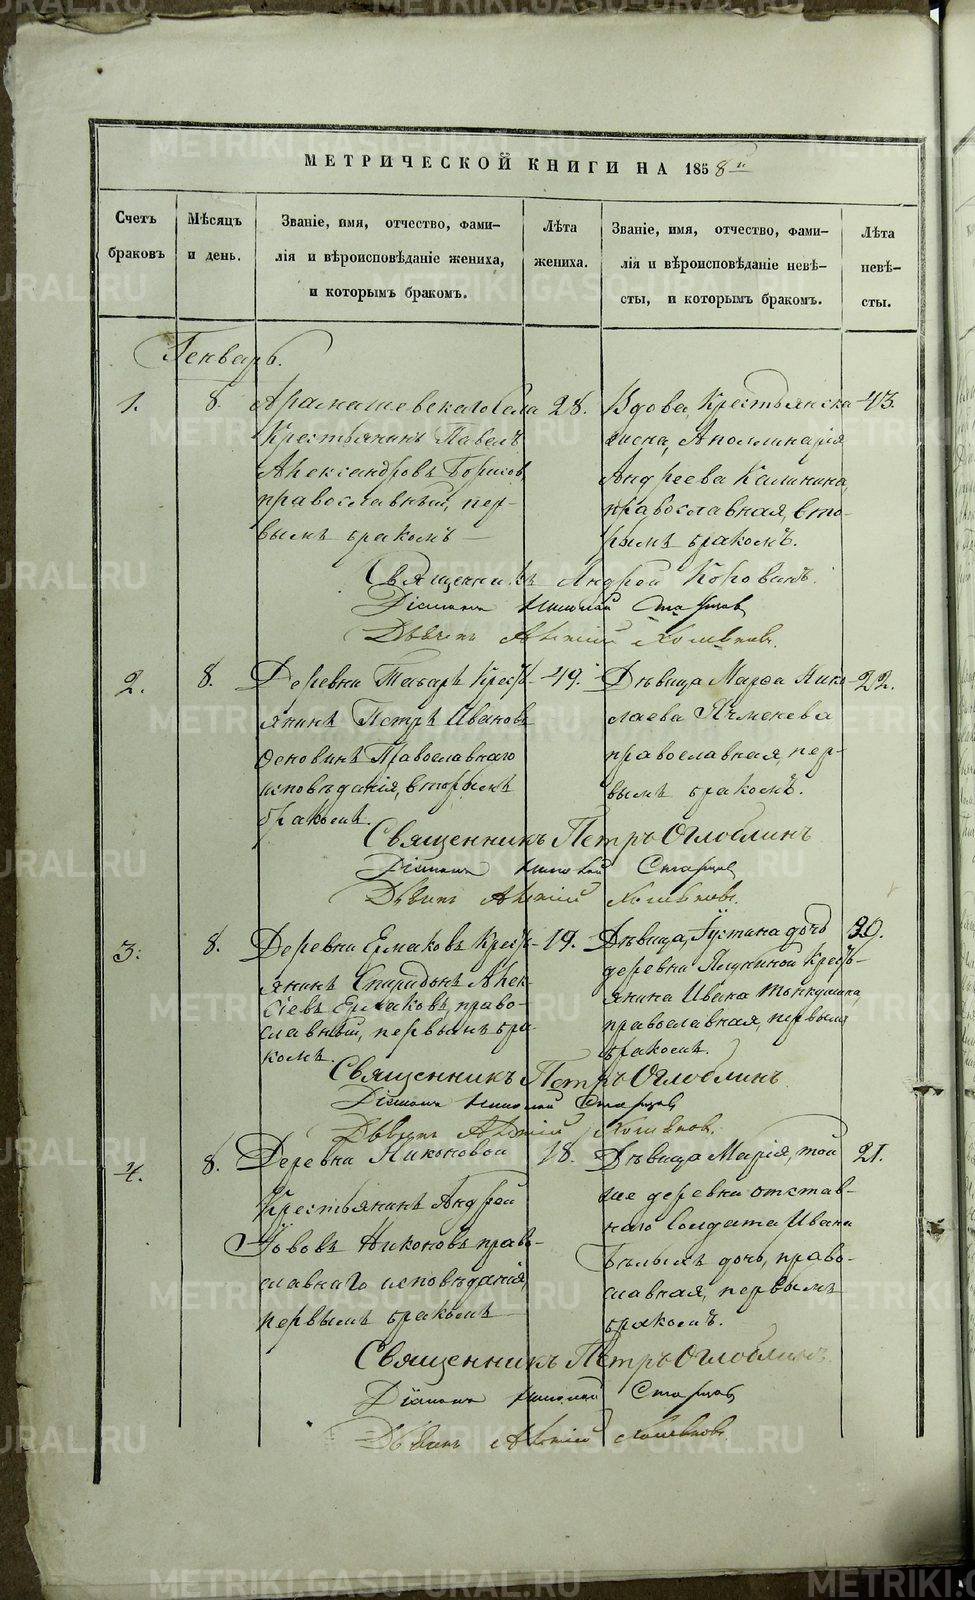 МЕТРИЧЕСКОЙ КНИГИ НА 1858й
Счетъ браковъ
Мѣсяцъ и день.
Званіе, имя, отчество, фами-
лія и вѣроисповѣданіе жениха,
и которымъ бракомъ.
Лѣта жениха.
Званіе, имя, отчество, фами-
лія и вѣроисповѣданіе невѣ-
сты, и которымъ бракомъ.
Лѣта невѣ-
сты.
Генварь.
1. 8. Арамашевскаго села
Крестьянинъ Павелъ
Александровъ Борисов
православный, пер-
вымъ бракомъ
28.
Вдова, Крестьянска
жена, Аполлинарія
Андреева Калинина,
православная, вто-
рымъ бракомъ.
43.
Священникъ Андрей Коровинъ.
Діаконъ Николай Старцов
Дьячекъ
2. 8. Деревни Крестъ-
янинъ Петръ Ивановъ
Осковинъ Православнаго
исповѣданія, вторымъ
бракомъ.
49.
Дѣвица Марѳа Нико-
лаева Ячменева
православная, пер-
вымъ бракомъ.
22.
Священникъ Петръ Оглоблинъ
Діаконъ Николай Старцов
Дьячекъ
3. 8. Деревни Ермаковъ Кресть-
янинъ Спиридонъ Алек-
сіевъ Ермаковъ, право-
славный, первымъ бра-
комъ.
19.
Дѣвица, Іустина дочь
деревни Кресть-
янина Ивана
православная, первымъ
бракомъ.
20.
Священникъ Петръ Оглоблинъ.
Діаконъ Николай Старцов
Дьячекъ
4. 8. Деревни Никоновой
Крестьянинъ Андрей
Іововъ Никоновъ право-
славнаго исповѣданія,
первымъ бракомъ
18.
Дѣвица Марія, той
же деревни отстав-
наго Солдата Ивана
Бѣлыхъ дочь, право-
славная, первымъ
бракомъ.
21.
Священникъ Петръ Оглоблинъ.
Діаконъ Николай Старцов
Дьячекъ
METRIKI.GASO-URAL.RU